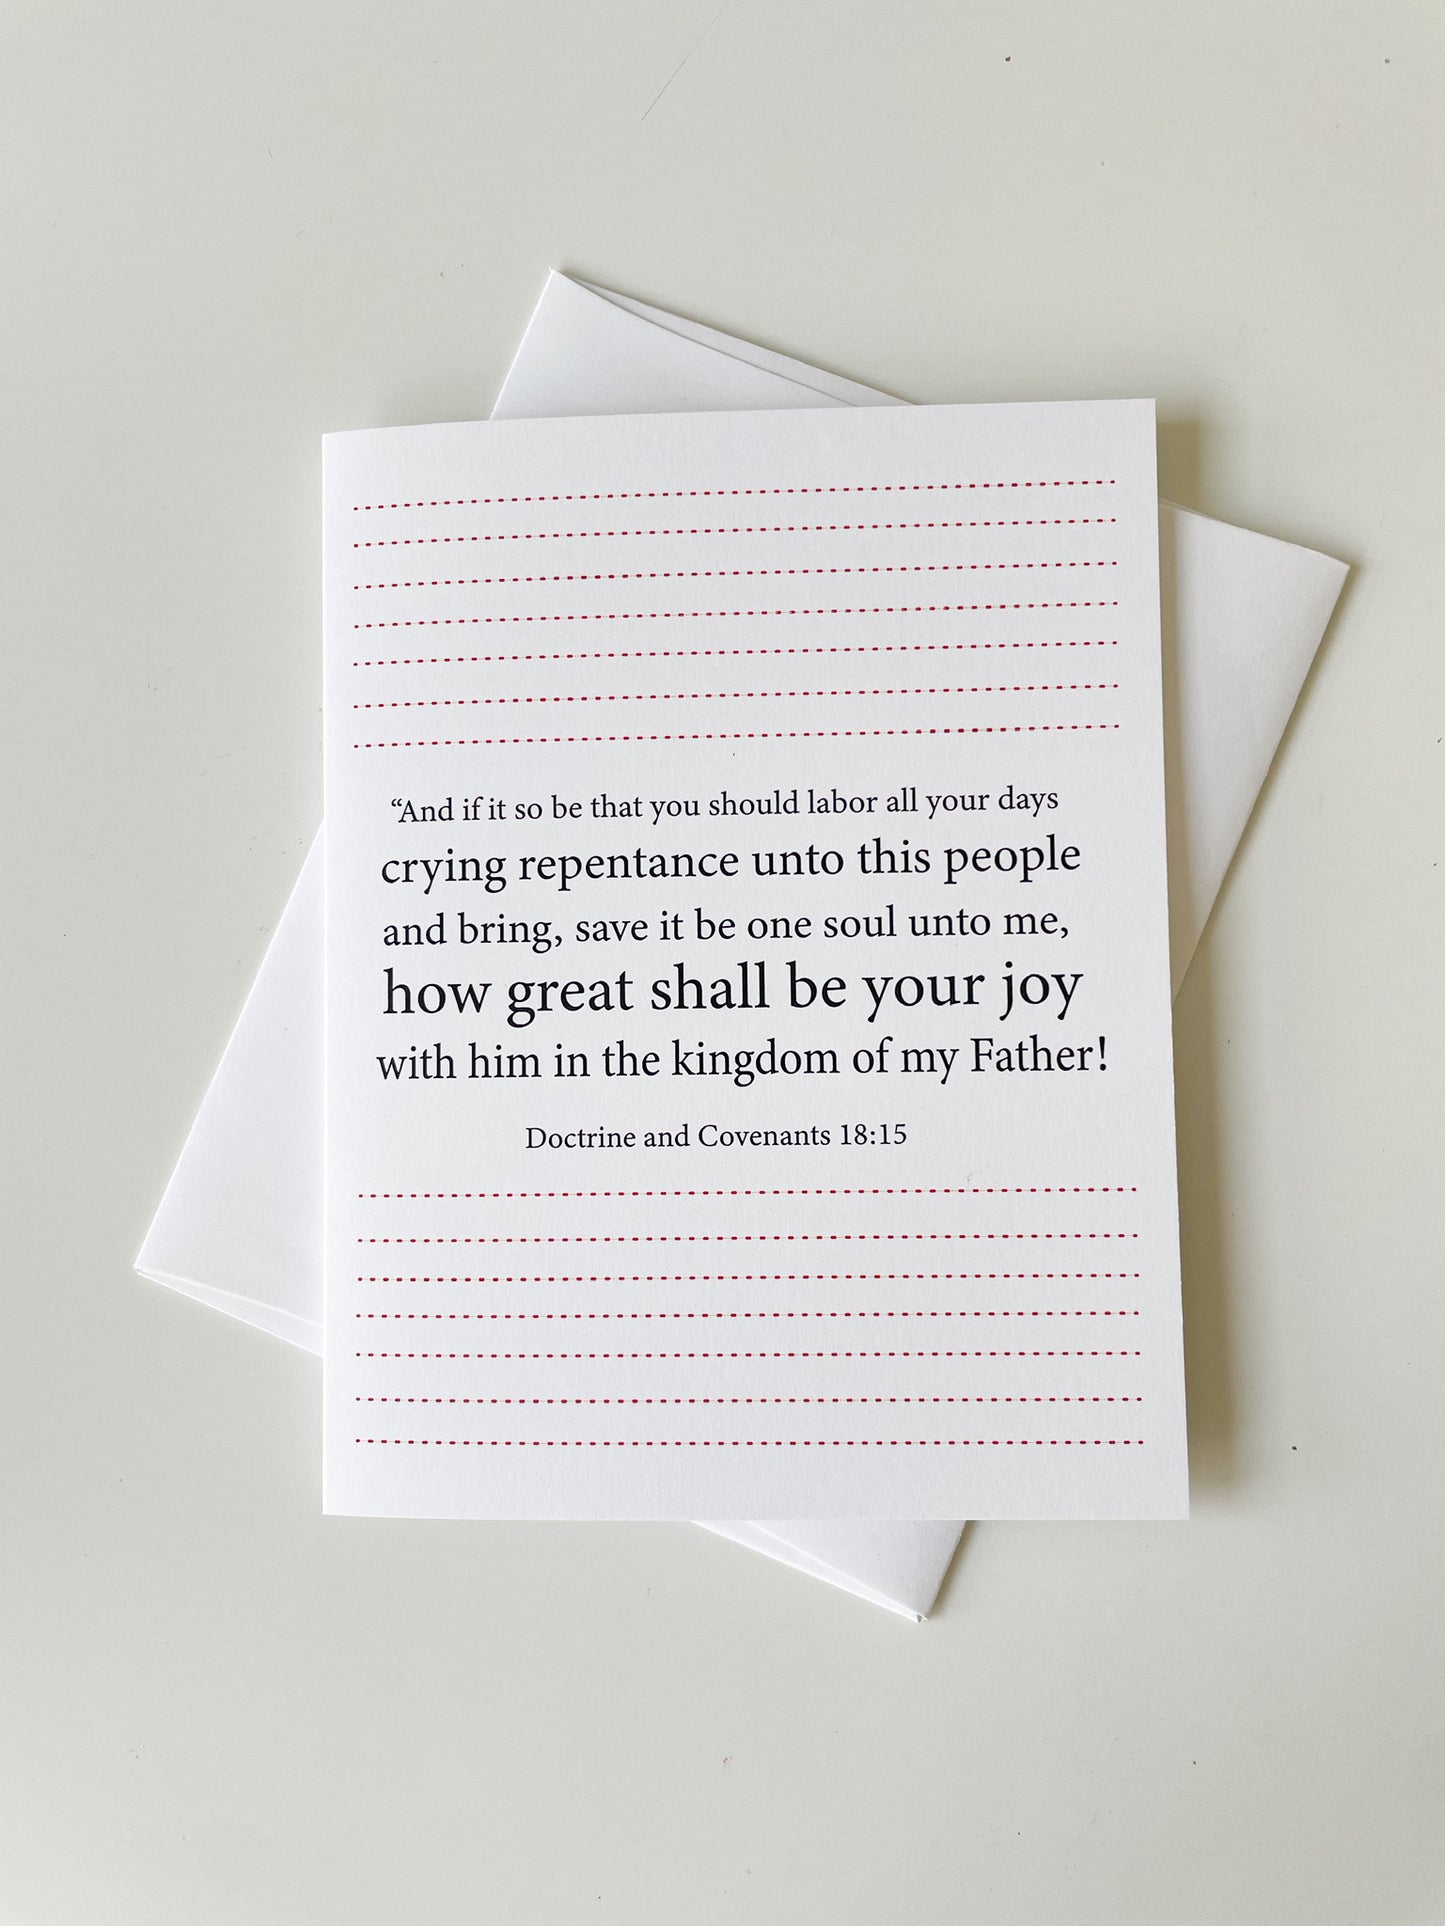 “And if it so be that you should labor all your days
crying repentance unto this people
and bring, save it be one soul unto me,
how great shall be your joy
with him in the kingdom of my Father!
Doctrine and Covenants 18:15